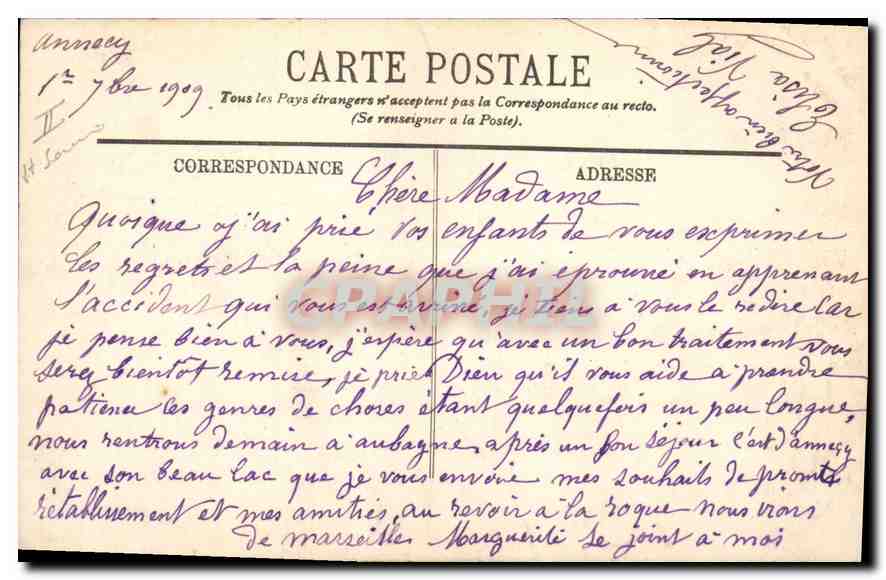 Annecy
1er 7bre 1909
II
CARTE POSTALE
Tous les Pays étrangers n'acceptent pas la Correspondance au recto.
(Se renseigner a la Poste).
CORRESPONDANCE
ADRESSE
Chère Madame
Quoique j'ai prié vos enfants de vous exprimer
les regrets et la peine que j'ai éprouvé en apprenant
l'accident qui vous est arrivé, je tiens à vous le redire car
je pense bien à vous, j'espère qu'avec un bon traitement vous
serez bientôt remise, je prie Dieu qu'il vous aide à prendre
patience ces genres de choses étant quelquefois un peu longue,
nous rentrons demain à aubagne après un bon séjour c'est d'annecy
avec son beau lac que je vous envoie mes souhaits de promts
rétablissement et mes amitiés, au revoir à la roque nous irons
de marseille, Marguerite se joint à moi
Votre bien affectionnée
Elisa Vial
CPAPHIL